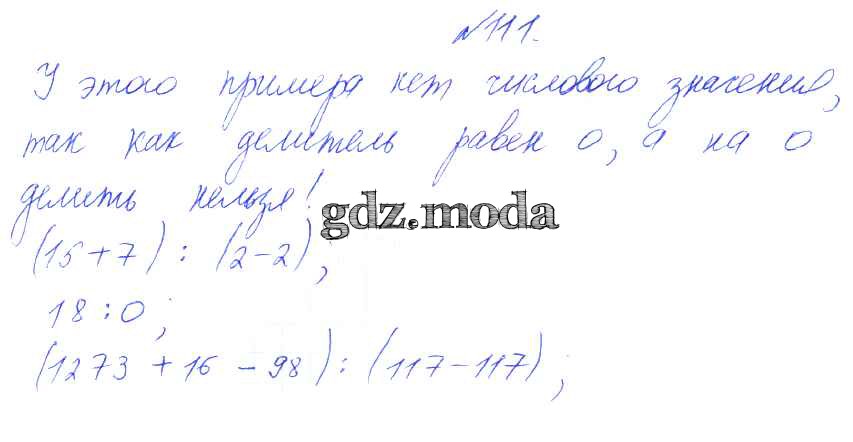 №111.
У этого примера нет числового значения,
так как делитель равен 0, а на 0
делить нельзя!
gdz.moda
(15+7) : (2-2);
18 : 0;
(1273 + 16 - 98) : (117-117);